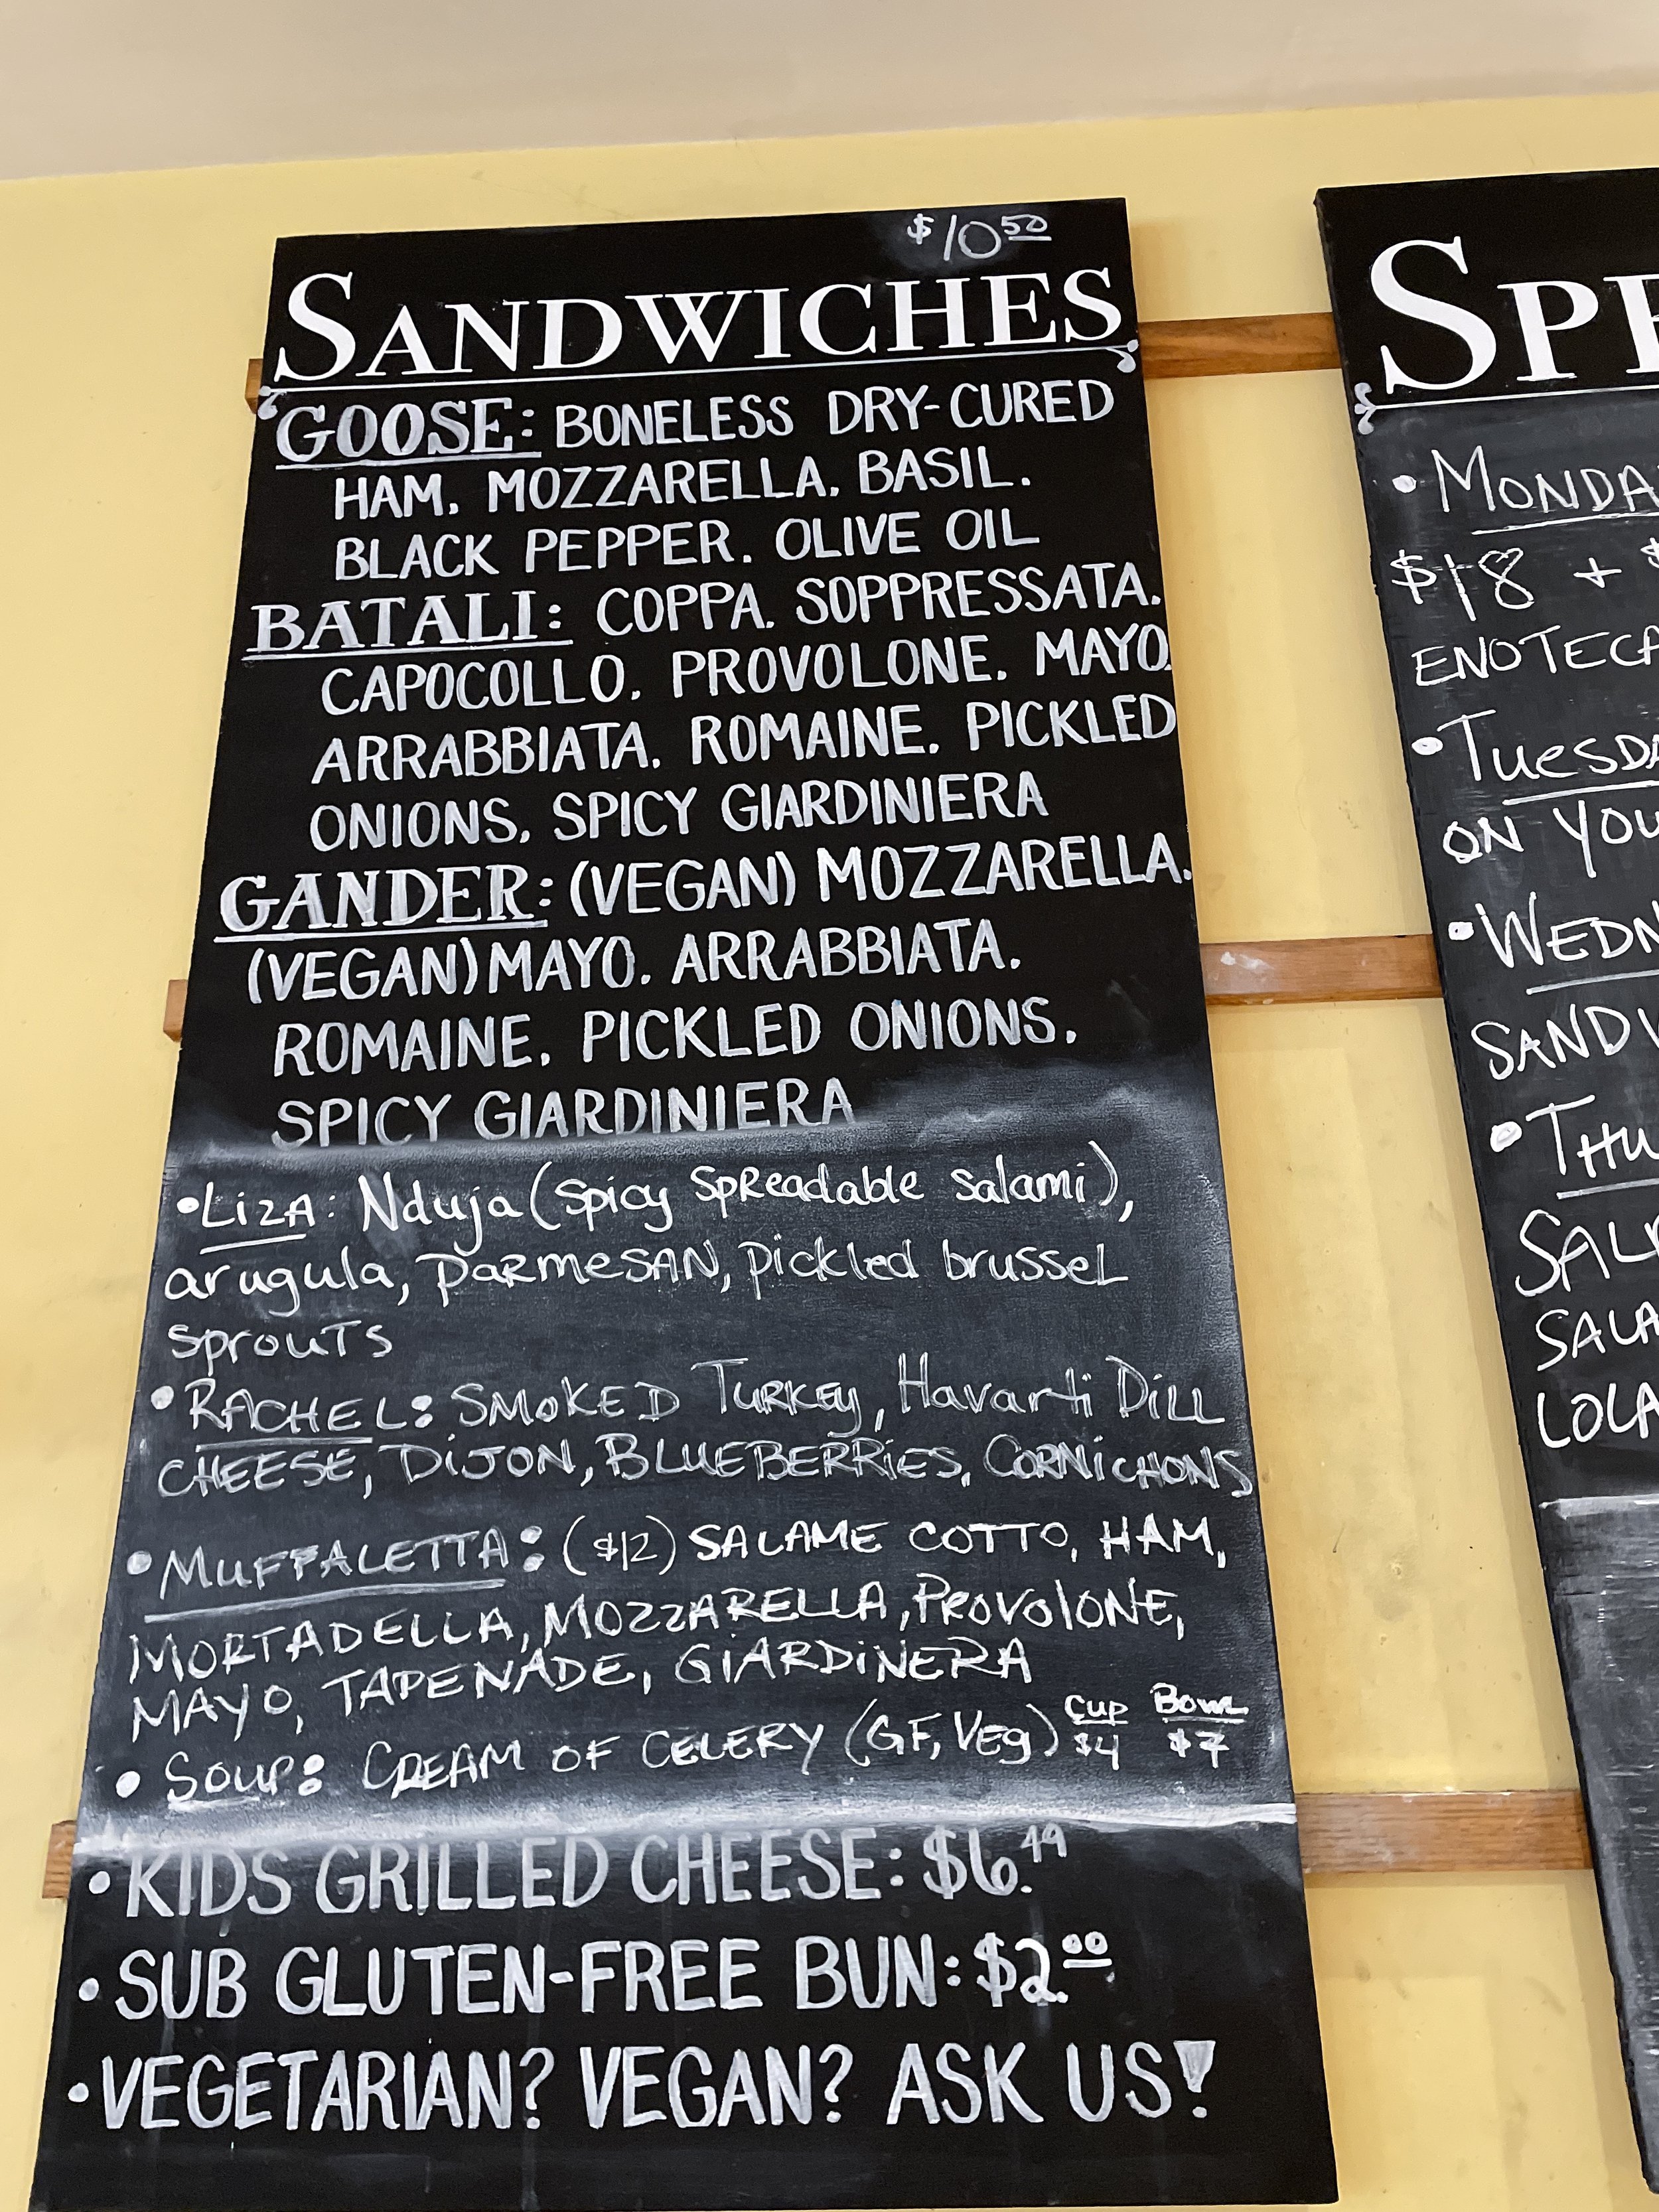 $10 50
SANDWICHES
GOOSE: BONELESS DRY-CURED
HAM, MOZZARELLA, BASIL,
BLACK PEPPER, OLIVE OIL
BATALI: COPPA, SOPPRESSATA,
CAPOCOLLO, PROVOLONE, MAYO,
ARRABBIATA, ROMAINE, PICKLED
ONIONS, SPICY GIARDINIERA
GANDER: (VEGAN) MOZZARELLA,
(VEGAN) MAYO, ARRABBIATA,
ROMAINE, PICKLED ONIONS,
SPICY GIARDINIERA
•LIZA: Nduja (spicy spreadable salami),
arugula, parmesan, pickled brussel
sprouts
•RACHEL: SMOKED TURKEY, Havarti Dill
CHEESE, DIJON, BLUEBERRIES, CORNICHONS
•MUFFALETTA: ($12) SALAME COTTO, HAM,
MORTADELLA, MOZZARELLA, PROVOLONE,
MAYO, TAPENADE, GIARDINERA
•SOUP: CREAM OF CELERY (GF, Veg) Cup $4 Bowl $7
•KIDS GRILLED CHEESE: $6.49
•SUB GLUTEN-FREE BUN: $2.00
•VEGETARIAN? VEGAN? ASK US!
•MONDA
$18 +
ENOTECA
•TUESDA
ON YOU
•WEDN
SAND
•THU
SAL
SALA
LOLA